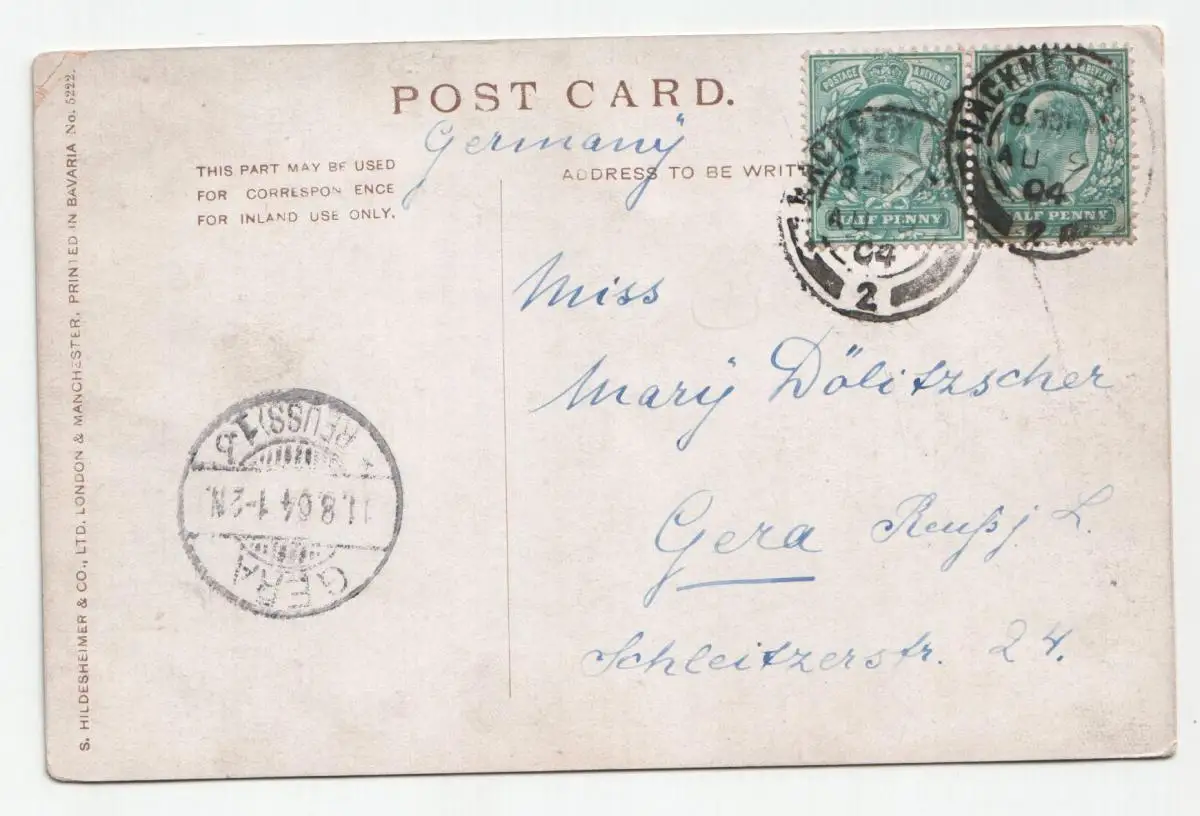 POST CARD.
Germany
THIS PART MAY BE USED
FOR CORRESPON ENCE
FOR INLAND USE ONLY.
ADDRESS TO BE WRIT
POSTAGE & REVENUE
HALF PENNY
& REVENUE
HALF PENNY
HACKNEY
8.30
AU 9
04
2
HACKNEY
8.30P
AU 9
04
2
Miss
Mary Dölitzscher
Gera Reußj. L.
Schleitzerstr. 24.
GERA
11.8.04 1-2N.
(REUSS) 1
S. HILDESHEIMER & CO., LTD. LONDON & MANCHESTER, PRINTED IN BAVARIA No. 5222.